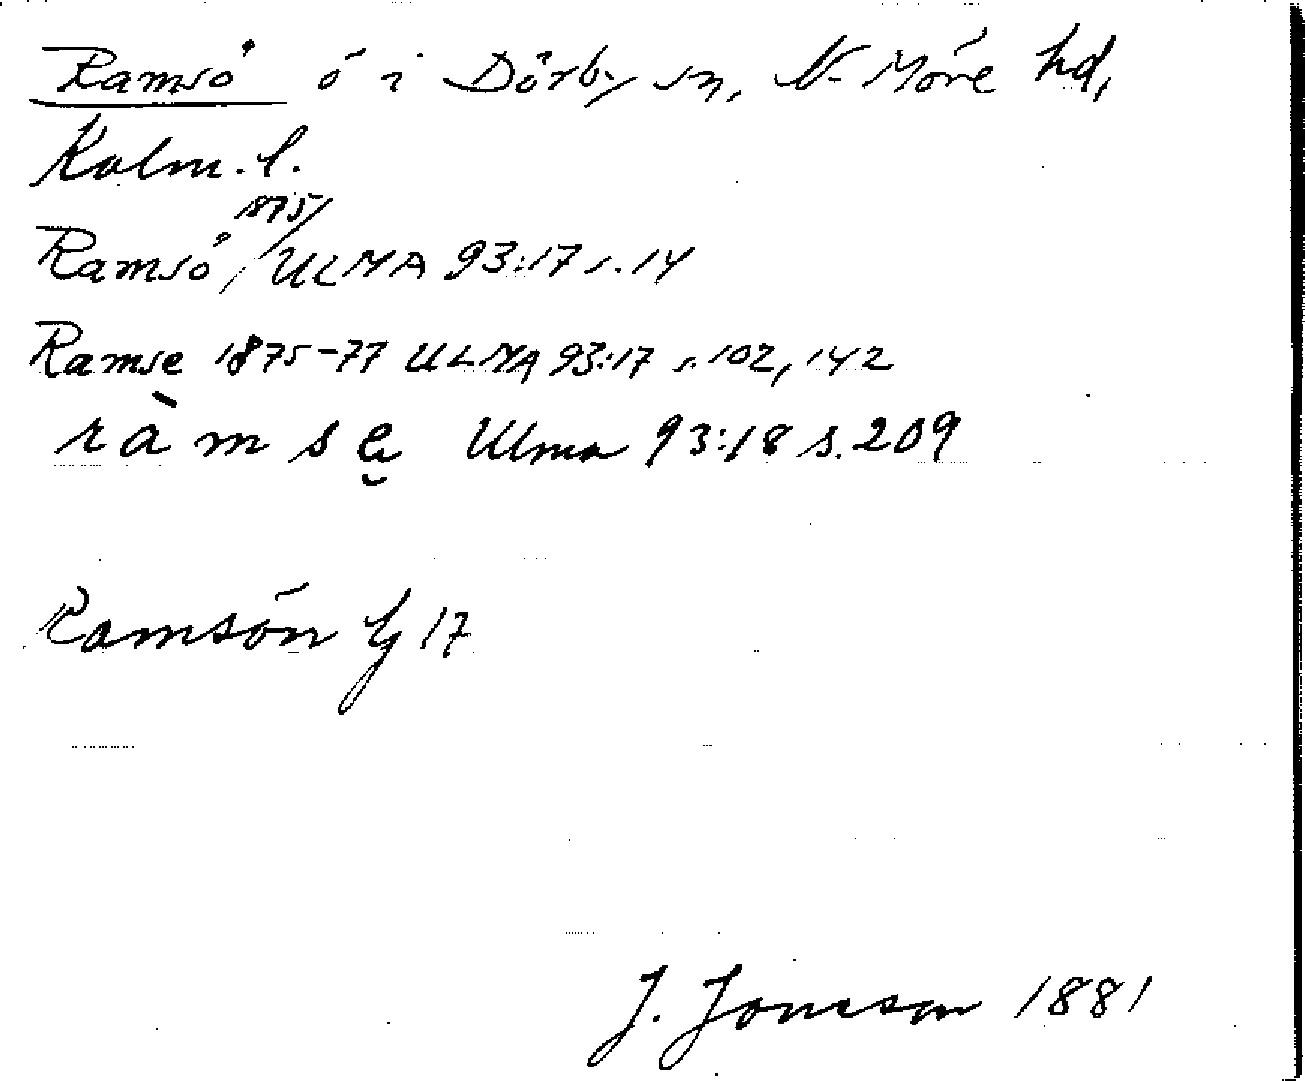 Ramsö ö i Dörby sn, N. Möre hd,
Kalm. l.
1875
Ramsö, ULMA 93:17 s. 14
Ramse 1875-77 ULMA 93:17 s. 102, 142
ràmsę Ulma 93:18 s. 209
Ramsön 17
J. Jonsson 1881